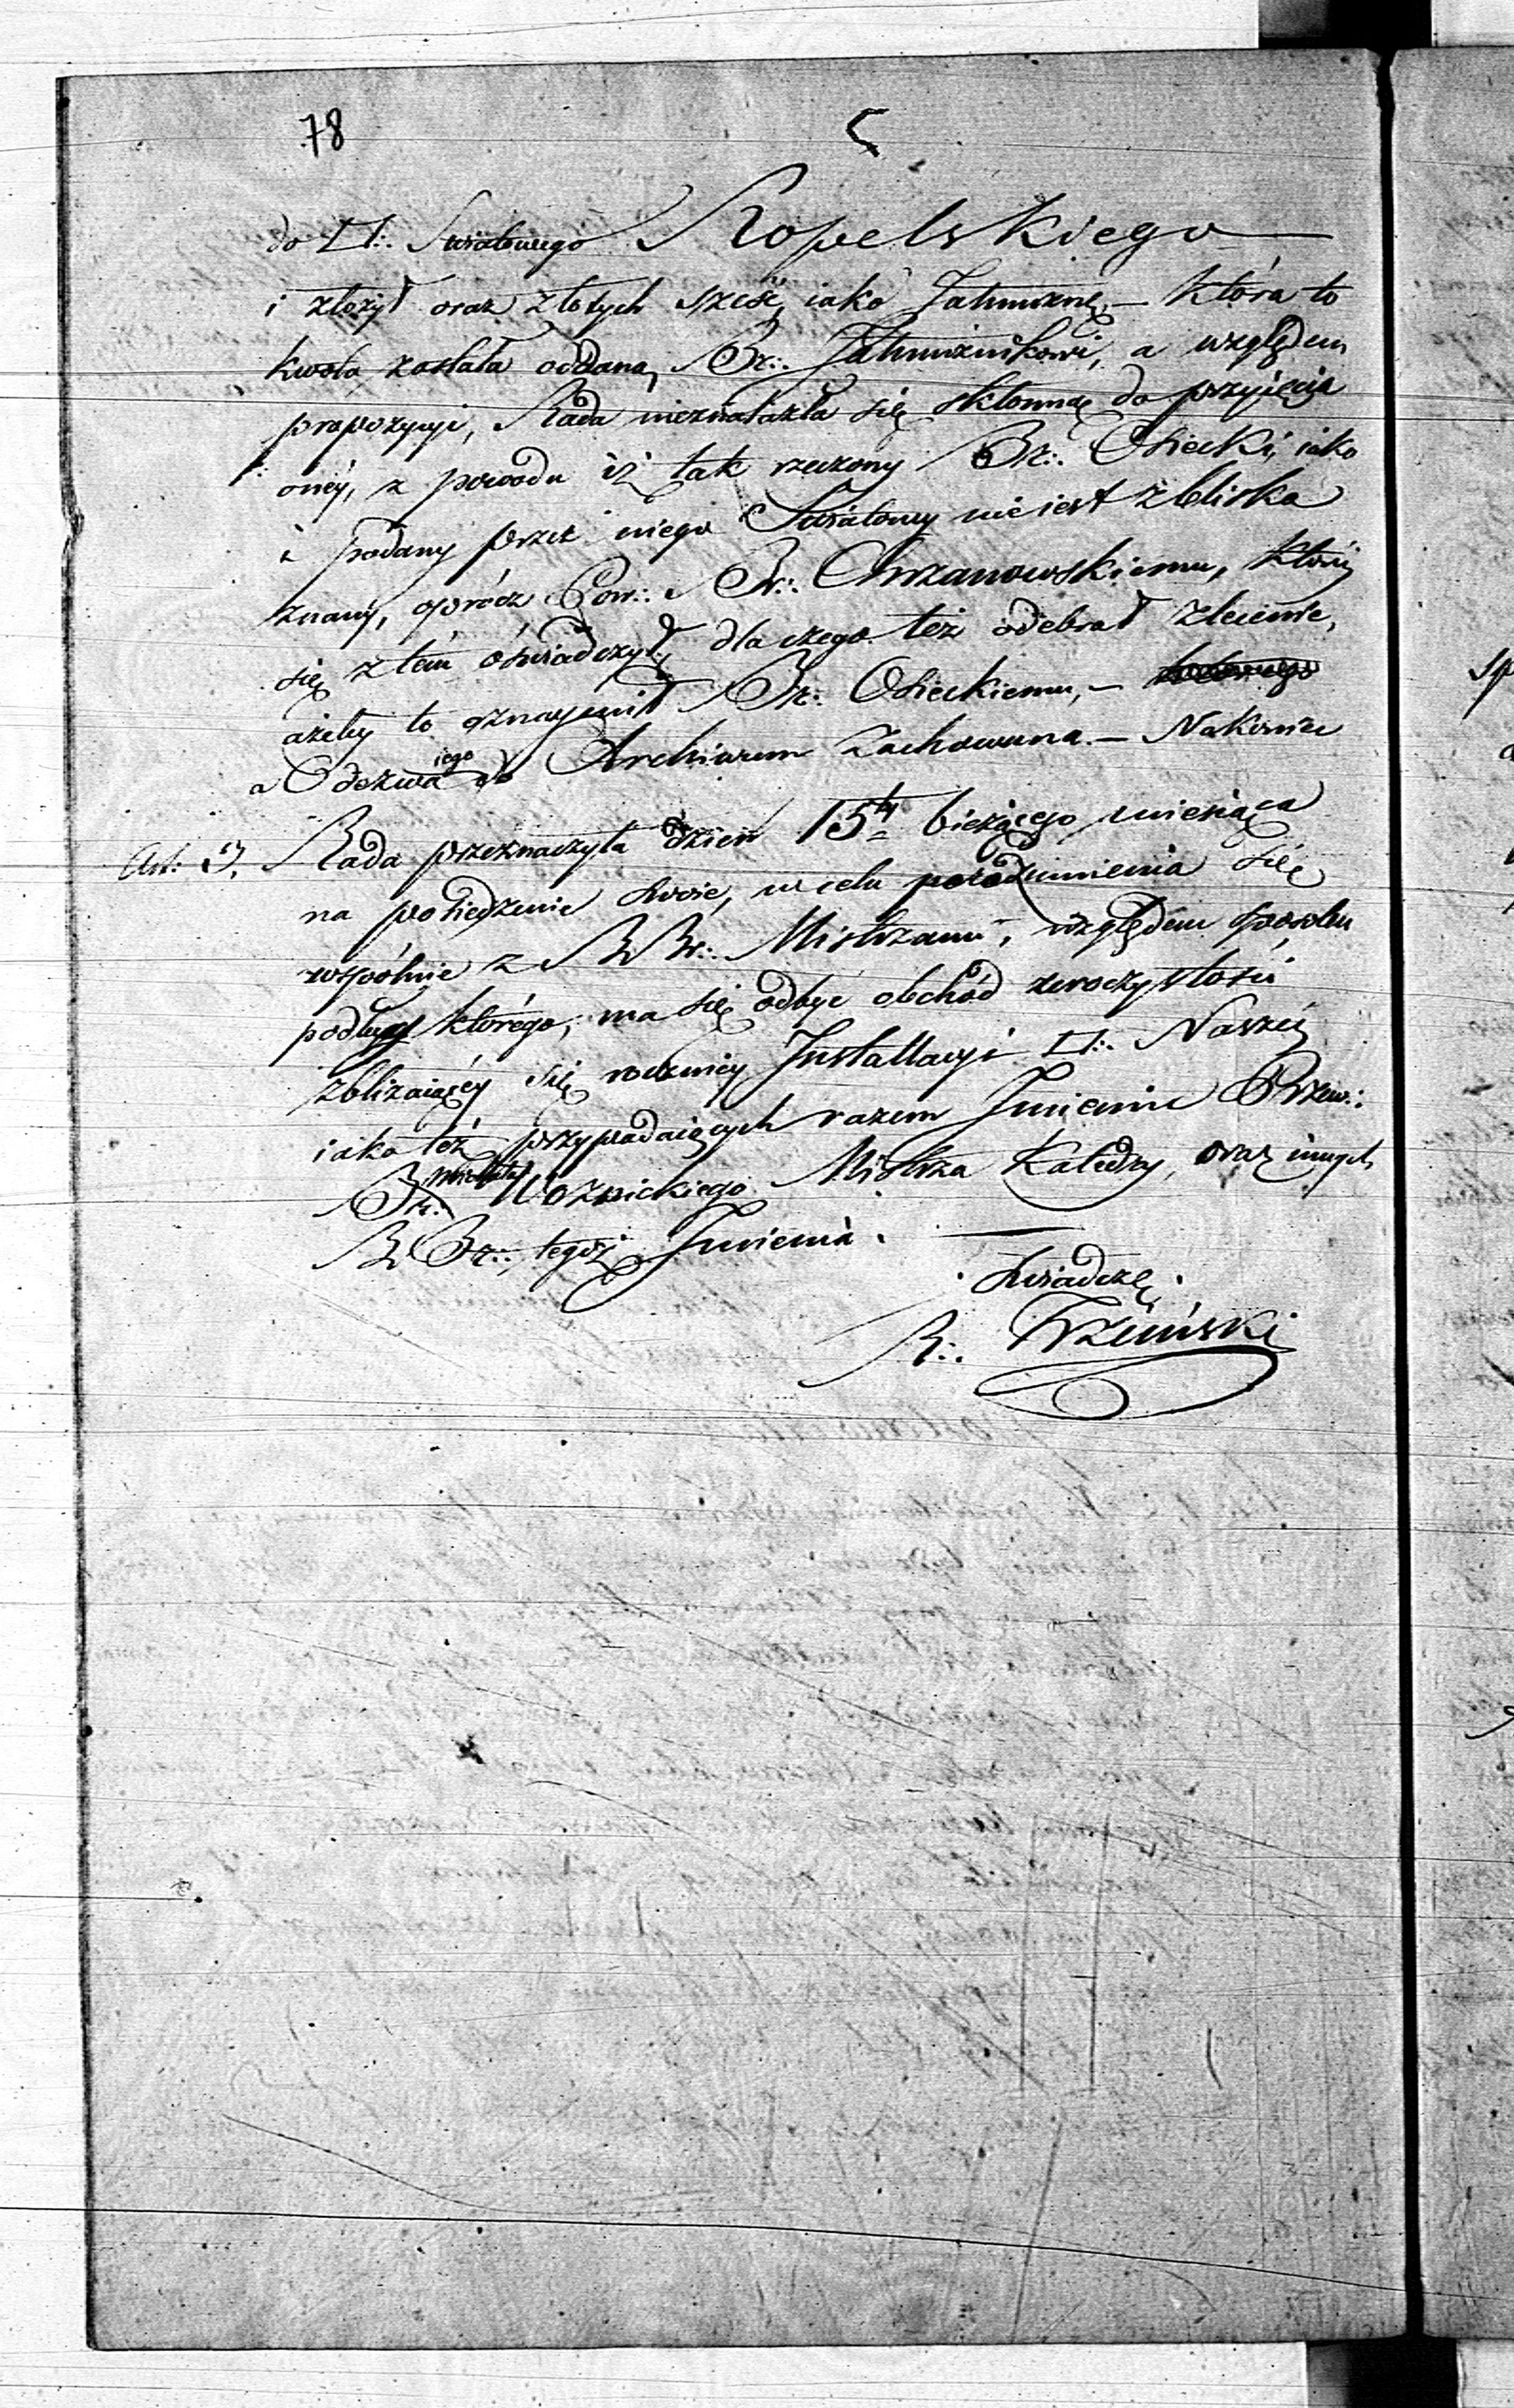 78
do □.: Swiatowego Kopelskiego
i złożył oraz złotych sześć, iako Jałmużnę, — która to
kwota została oddana, Br.: Jałmużnikowi, a względem
propozycyi, Rada nieznalazła się skłonną do przyięcia
onéy, z powodu iż tak rzeczony Br.: Osiecki, iako
i podany przez niego Swiatowy nie iest zbliska
znany, oprócz Cow.: Br.: Chrzanowskiemu, który
się z tém oświadczył, dla czego też odebrał zlecenie,
ażeby to oznaymił Br.: Osieckiemu, —
a Odezwa iego do Archiwum Zachowana. — Nakoniec
Art: 3. Rada przeznaczyła dzień 15ty bieżącego miesiąca
na posiedzenie swoie, w celu porozumienia się
wspólnie z B Br.: Mistrzami, względem sposobu
podług którego, ma się odbyć obchód uroczystości
zbliżaiącéy się rocznicy Installacyi □.: Naszéy
iako też przypadaiących razem Imienin Przew.:
Br.: Woznickiego Mistrza Katedry, oraz innych
B Br.: tegoż Imienia.
Swiadczę.
R.: Trzciński